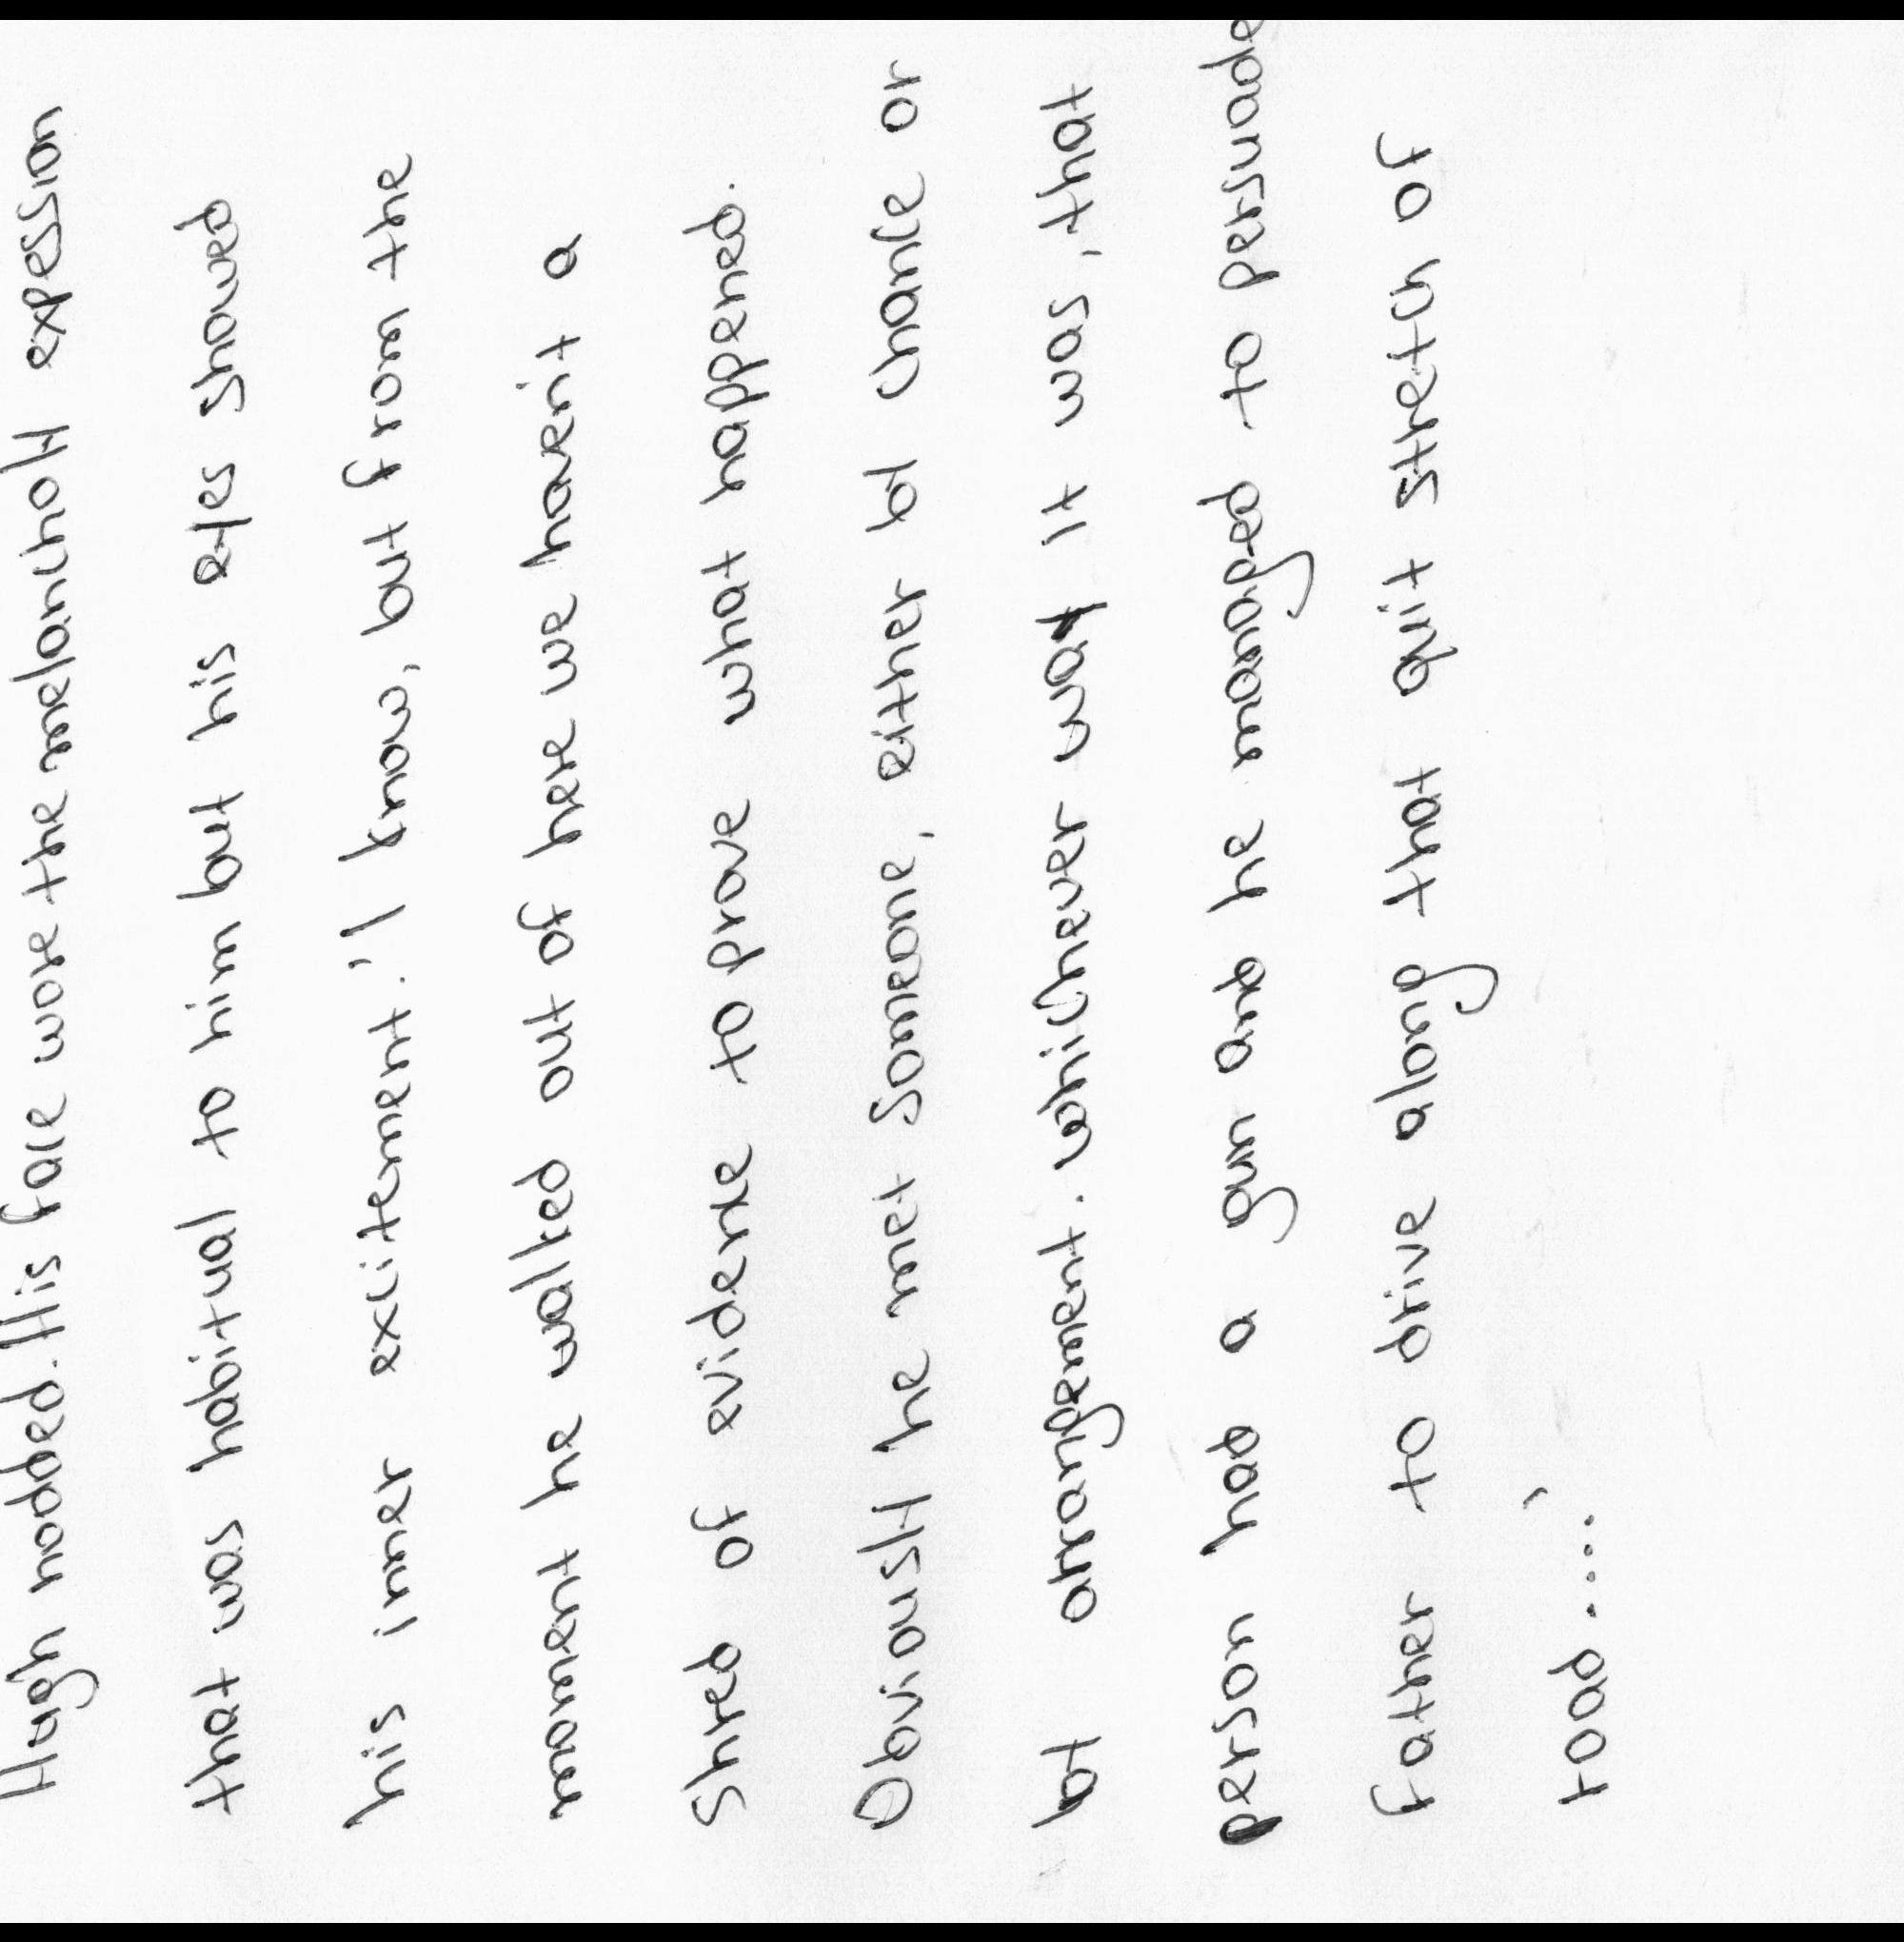 Hugh nodded. His face wore the melancholy expession
that was habitual to him but his eyes showed
his inner excitement. 'I know, but from the
moment he walked out of here we haven't a
shred of evidence to prove what happened.
Obviously he met someone, either by chance or
by arrangement. Whichever way it was, that
person had a gun and he managed to persuade
Father to drive along that quiet stretch of
road....'